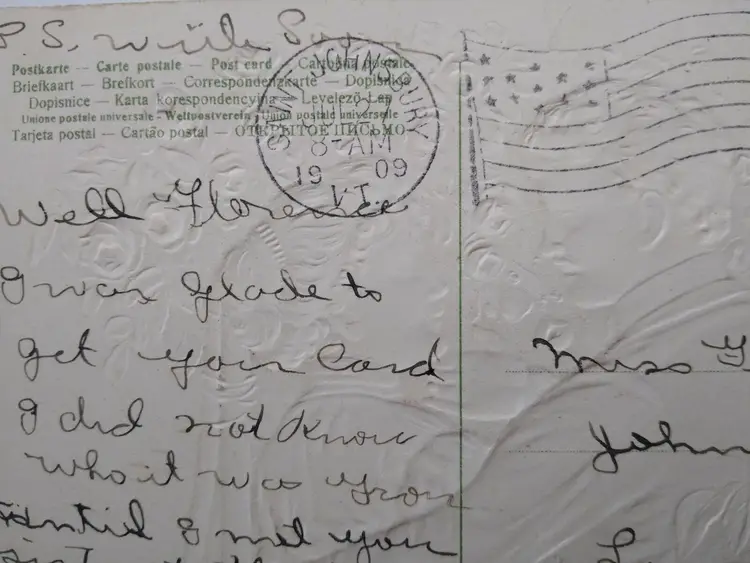 P.S. write Soon
Postkarte — Carte postale — Post card — Cartolina postale
Briefkaart — Brefkort — Correspondenzkarte — Dopisnice
Dopisnice — Karta korespondencyjna — Levelező-Lap
Unione postale universale - Weltpostverein - Union postale universelle
Tarjeta postal — Cartão postal — ОТКРЫТОЕ ПИСЬМО
ST. JOHNSBURY
8-AM
19 09
VT.
Well Florence
I was glade to
get your Card
I did not know
who it was from
untill I met you
Miss F
John